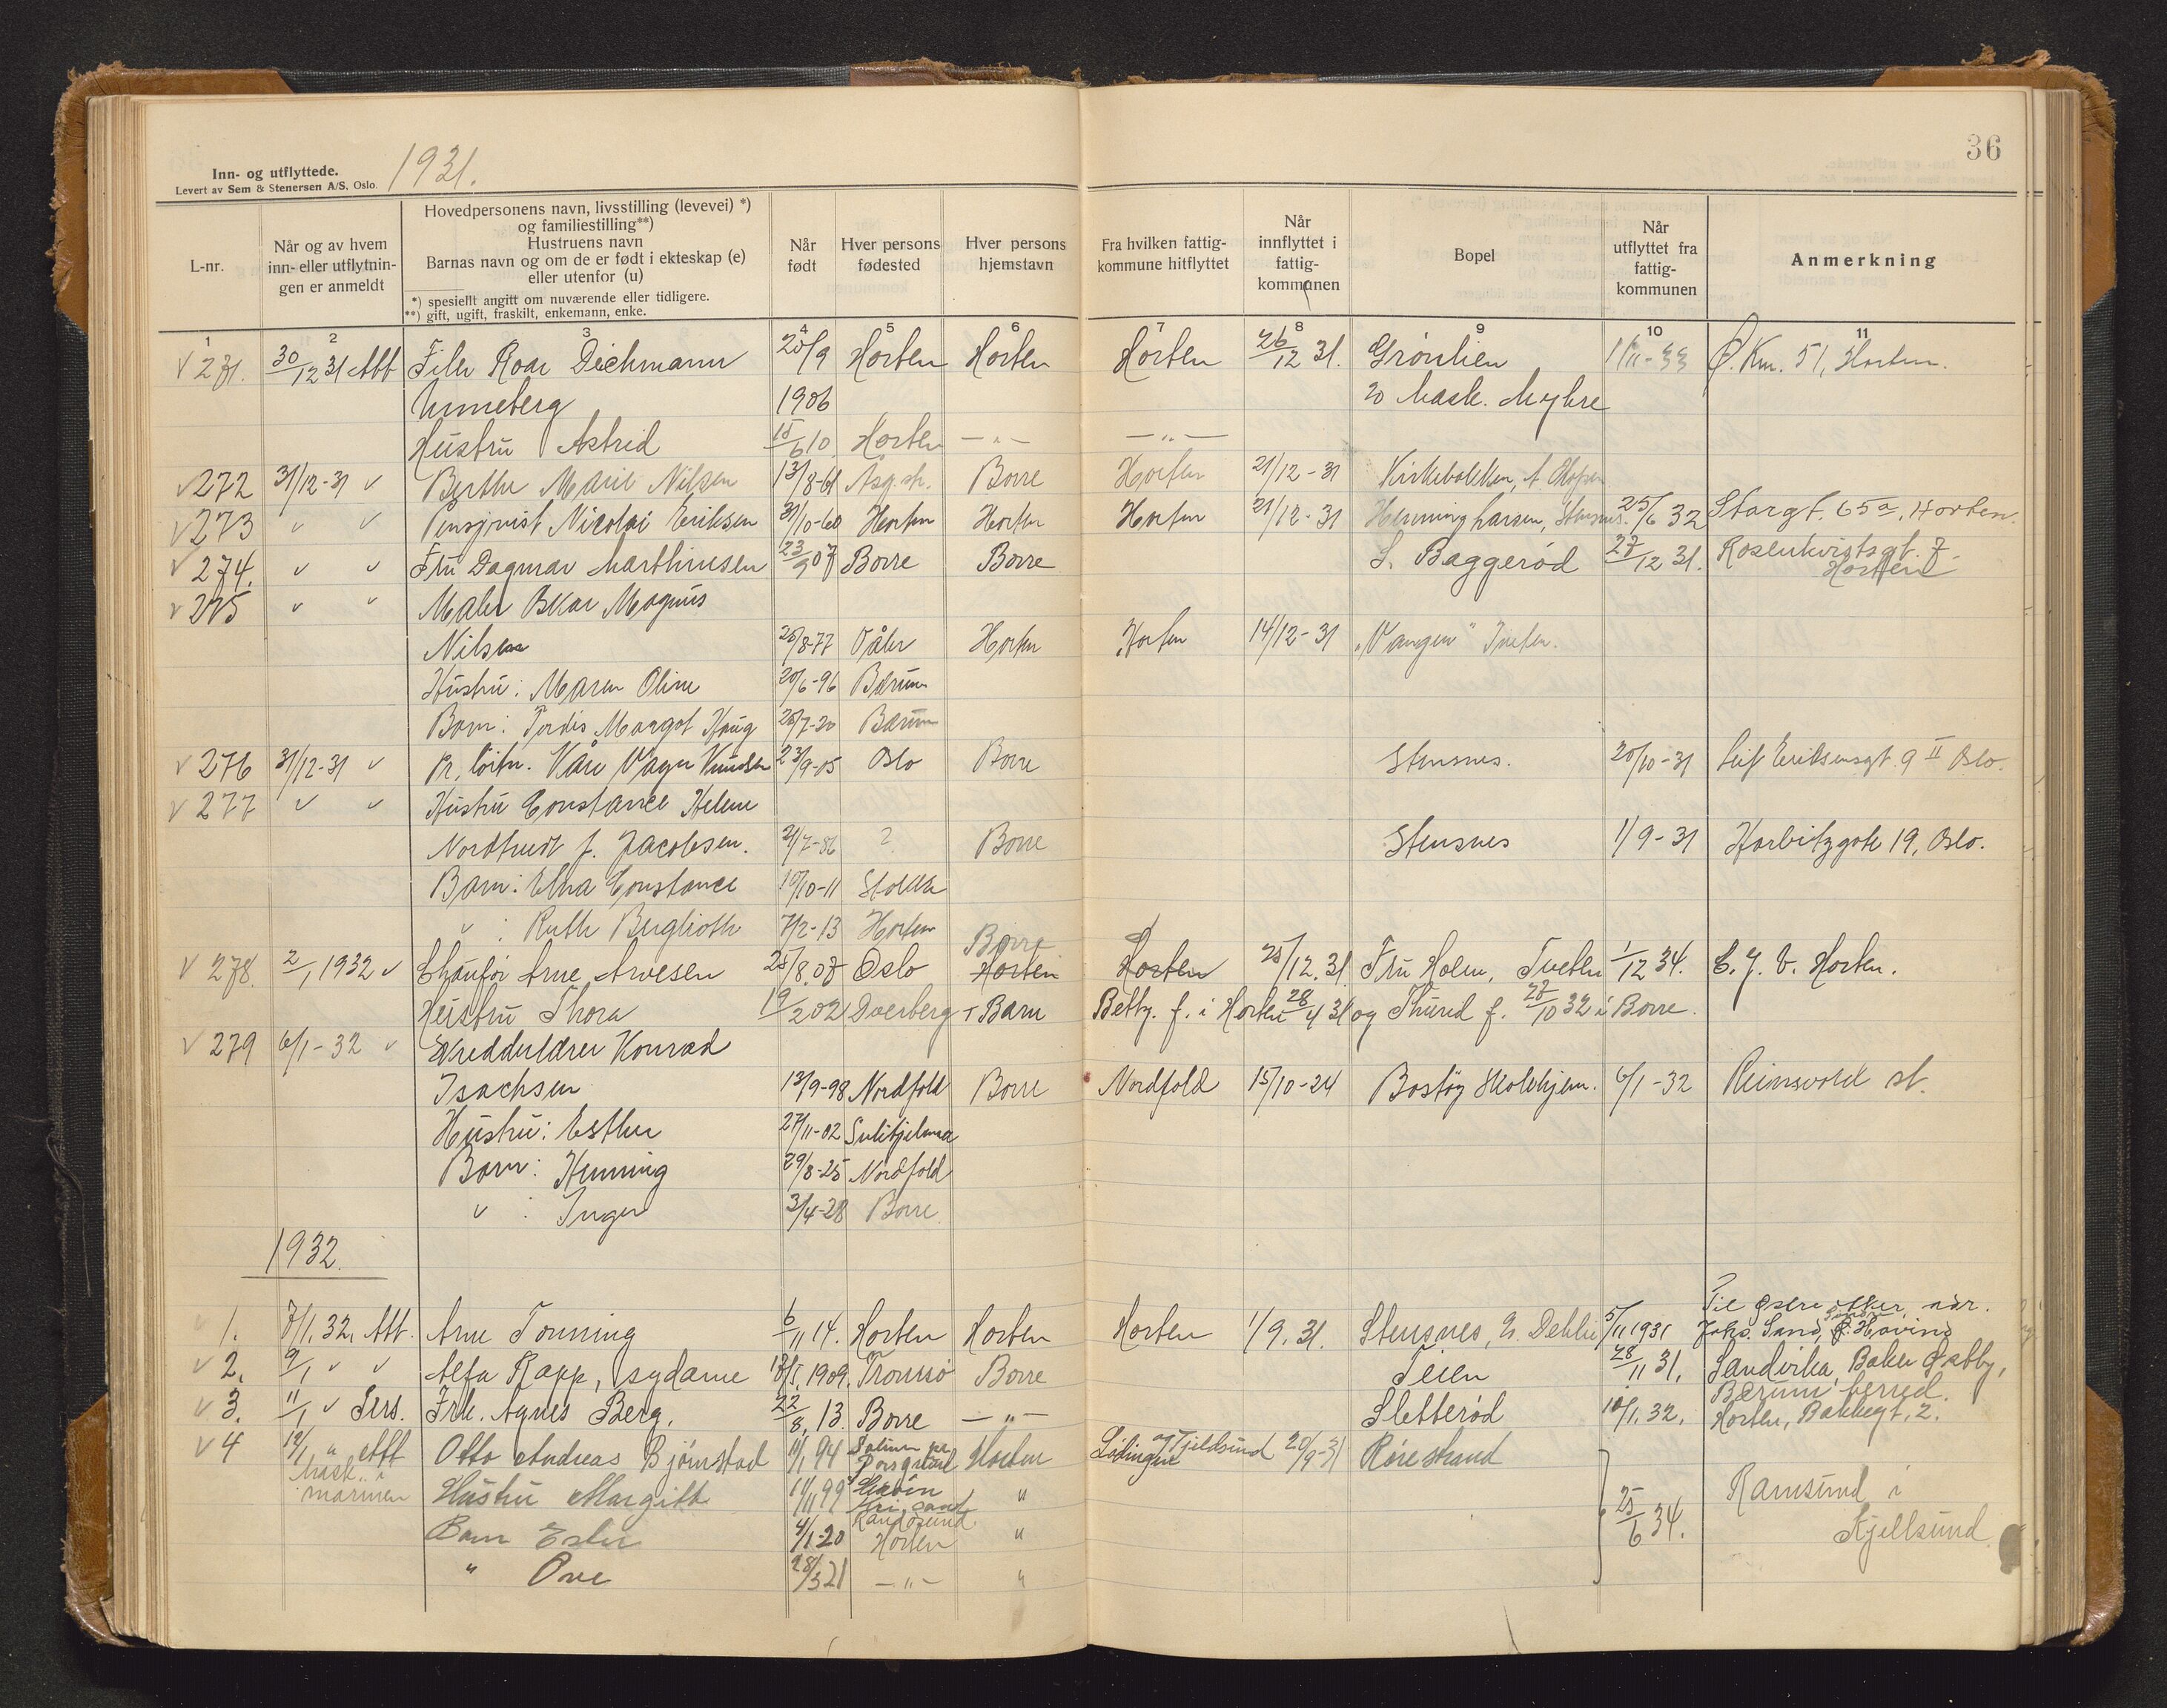 36
Inn- og utflyttede. 1931.
Levert av Sem & Stenersen A/S, Oslo.
L-nr.
Når og av hvem inn- eller utflytnin- gen er anmeldt
Hovedpersonens navn, livsstilling (levevei) *)
og familiestilling**)
Hustruens navn
Barnas navn og om de er født i ekteskap (e)
eller utenfor (u)
*) spesiellt angitt om nuværende eller tidligere.
**) gift, ugift, fraskilt, enkemann, enke.
Når født
Hver persons fødested
Hver persons hjemstavn
Fra hvilken fattig- kommune hitflyttet
Når innflyttet i fattig- kommunen
Bopel
Når utflyttet fra fattig- kommunen
Anmerkning
1 2 3 4 5 6 7 8 9 10 11
271. 30/12 31 Att Filh Roar Dichmann 20/9 Horten Horten Horten 26/12 31. Grønlien 1/11-33 Ø. Km. 51, Horten.
Unneberg 1906 Mask. Myhre
Hustru Astrid 15/6 10 Horten — " — — " —
272 31/12-31 Berthe Marie Nilsen 13/8-61 Åsg.str. Borre Horten 21/12-31 Kirkebakken,
273 " " Pensjonist Nicolai Eriksen 31/10-60 Horten Horten Horten 21/12-31 Henning Larsen, Stensnes. 25/6 32 Storgt. 65a, Horten.
274. " " Fru Dagmar Marthinsen 23/9 07 Borre Borre S. Baggerød 27/12 31. Rosenkvistsgt. 7.
Horten
275 " " Maler Oskar Magnus
Nilsen 26/8-77 Våler Horten Horten 14/12-31 "Vangen" Tveten.
Hustru: Maren Oline 20/6-96 Bærum
Barn: Tordis Margot Haug 26/7-20 Bærum
276 31/12-31 Pr. løitn. Kåre Vagn Knudsen 23/9-05 Oslo Borre Stensnes. 20/10-31 Leif Eriksensgt. 9 II Oslo.
277 " " Hustru Constance Helene
Nordtvedt f. Jacobsen. 21/7-86 ? Borre Stensnes 1/9-31 Harbitzgate 19, Oslo.
Barn: Elna Constance 10/10-11 Stokke
" : Ruth Berglioth 7/2-13 Horten
Borre
278. 2/1 1932 Chaufør Arne Arvesen 25/8.07 Oslo Horten Horten 28/12.31 Fru Holm, Tveten 1/12 34. C. J. V. Horten.
Hustru Thora 19/2 02 Dverberg + Barn Betty. f. i Horten 28/4 31 og Thurid f. 28/10 32 i Borre.
279 6/1-32 Vredduldrer Konrad
Isachsen 13/9-98 Nordfold Borre Nordfold 15/10-24 Bastøy Skolehjem. 6/1-32 Reinsvold st.
Hustru: Esther 27/11-02 Sulitjelma
Barn: Henning 29/8-25 Nordfold
" : Inger 3/4-28 Borre.
1932.
Til Østre Aker, adr.
1. 7/1.32. Att. Arne Tonning 6/11 14. Horten Horten Horten 1/9.31. Stensnes, H. Dehli 5/11 1931 Johs. Sand, Søndre Høvind
2. 9/1 " " Alfa Rapp, sydame 18/5.1909. Tromsø Borre Teien 28/11 31. Sandvika, Baker Østby,
Bærum herred.
3. 11/1 " Sers. Frk. Agnes Berg. 22/8.13. Borre — " — Sletterød 10/1.32. Horten, Bakkegt. 2.
4 12/1 " Att Otto Andreas Bjørnstad 11/1 94 Solum pr Porsgrund Horten Lødingen og Tjeldsund 20/9-31 Rørestrand
Mask. i
marinen Hustru Margitt 11/11 99 "
Kr.sand
Randøsund Ramsund i
Barn Ester 4/1-20 Horten " 25/6 34. Kjellsund
" Ove 28/3 21 — " — "